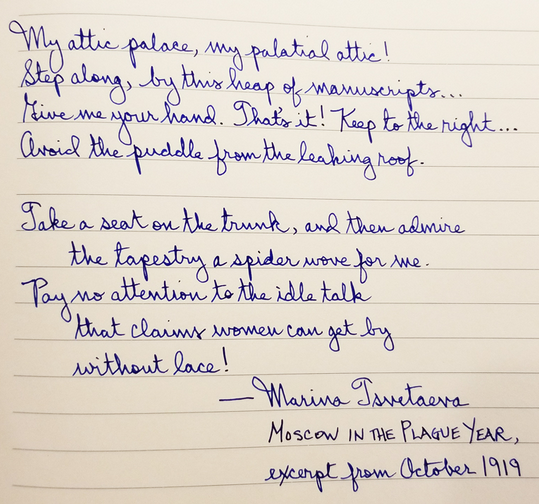 My attic palace, my palatial attic!
Step along, by this heap of manuscripts...
Give me your hand. That's it! Keep to the right...
Avoid the puddle from the leaking roof.
Take a seat on the trunk, and then admire
the tapestry a spider wove for me.
Pay no attention to the idle talk
that claims women can get by
without lace!
— Marina Tsvetaeva
MOSCOW IN THE PLAGUE YEAR,
excerpt from October 1919